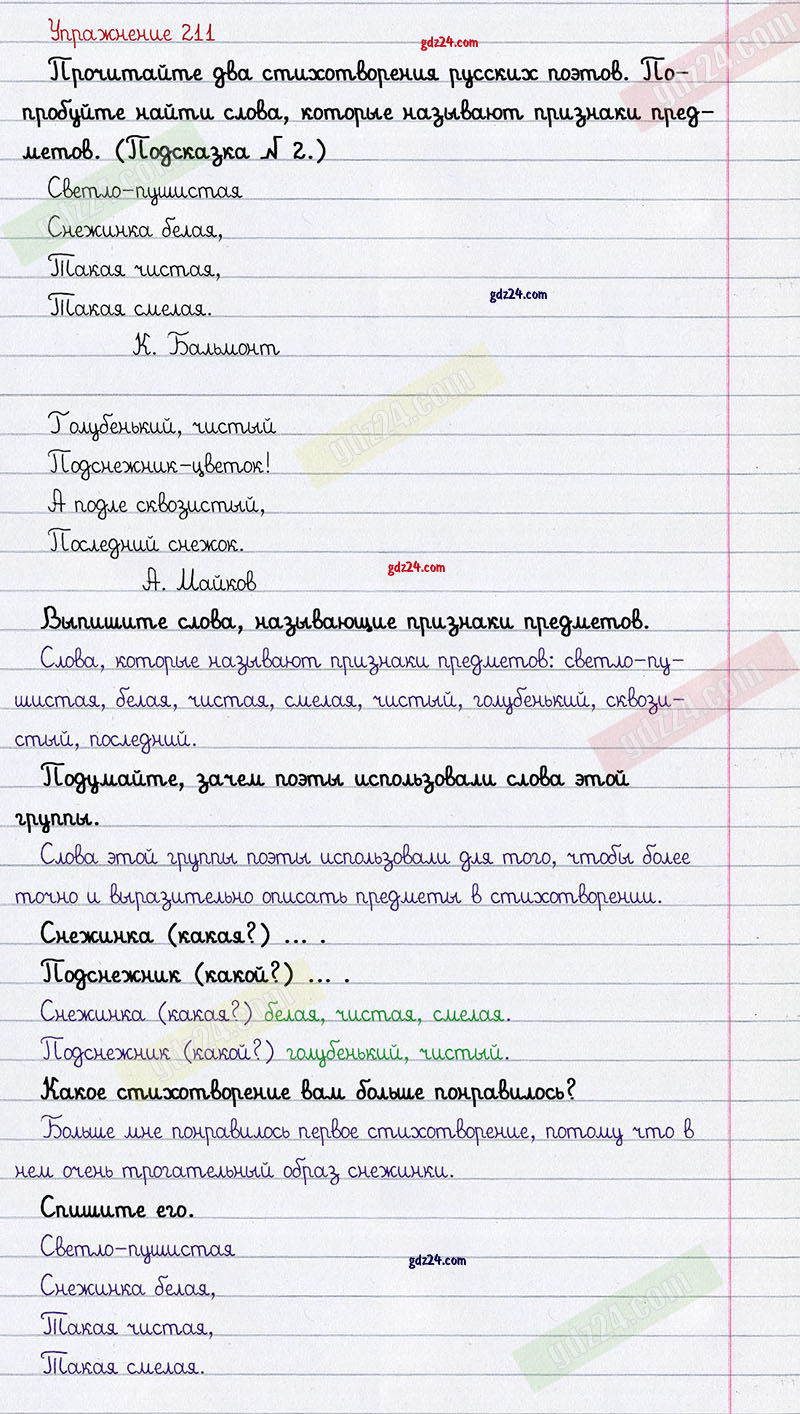 Упражнение 211
gdz24.com
Прочитайте два стихотворения русских поэтов. По-
пробуйте найти слова, которые называют признаки пред-
метов. (Подсказка № 2.)
Светло-пушистая
Снежинка белая,
Такая чистая,
Такая смелая.
gdz24.com
К. Бальмонт
Голубенький, чистый
Подснежник-цветок!
А подле сквозистый,
Последний снежок.
gdz24.com
А. Майков
Выпишите слова, называющие признаки предметов.
Слова, которые называют признаки предметов: светло-пу-
шистая, белая, чистая, смелая, чистый, голубенький, сквози-
стый, последний.
Подумайте, зачем поэты использовали слова этой
группы.
Слова этой группы поэты использовали для того, чтобы более
точно и выразительно описать предметы в стихотворении.
Снежинка (какая?) ... .
Подснежник (какой?) ... .
Снежинка (какая?) белая, чистая, смелая.
Подснежник (какой?) голубенький, чистый.
Какое стихотворение вам больше понравилось?
Больше мне понравилось первое стихотворение, потому что в
нем очень трогательный образ снежинки.
Спишите его.
Светло-пушистая
gdz24.com
Снежинка белая,
Такая чистая,
Такая смелая.
gdz24.com
gdz24.com
gdz24.com
gdz24.com
gdz24.com
gdz24.com